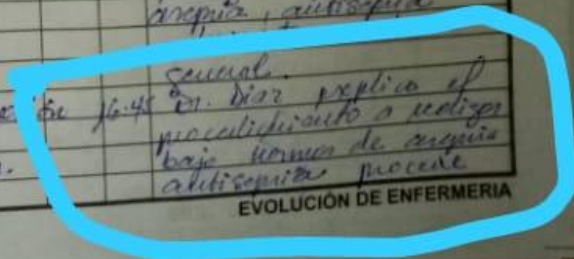 asepsia, antisepsia
general.
16:45 Dr. Diaz explica el
procedimiento a realizar
bajo normas de asepsia
antisepsia procede
EVOLUCIÓN DE ENFERMERIA